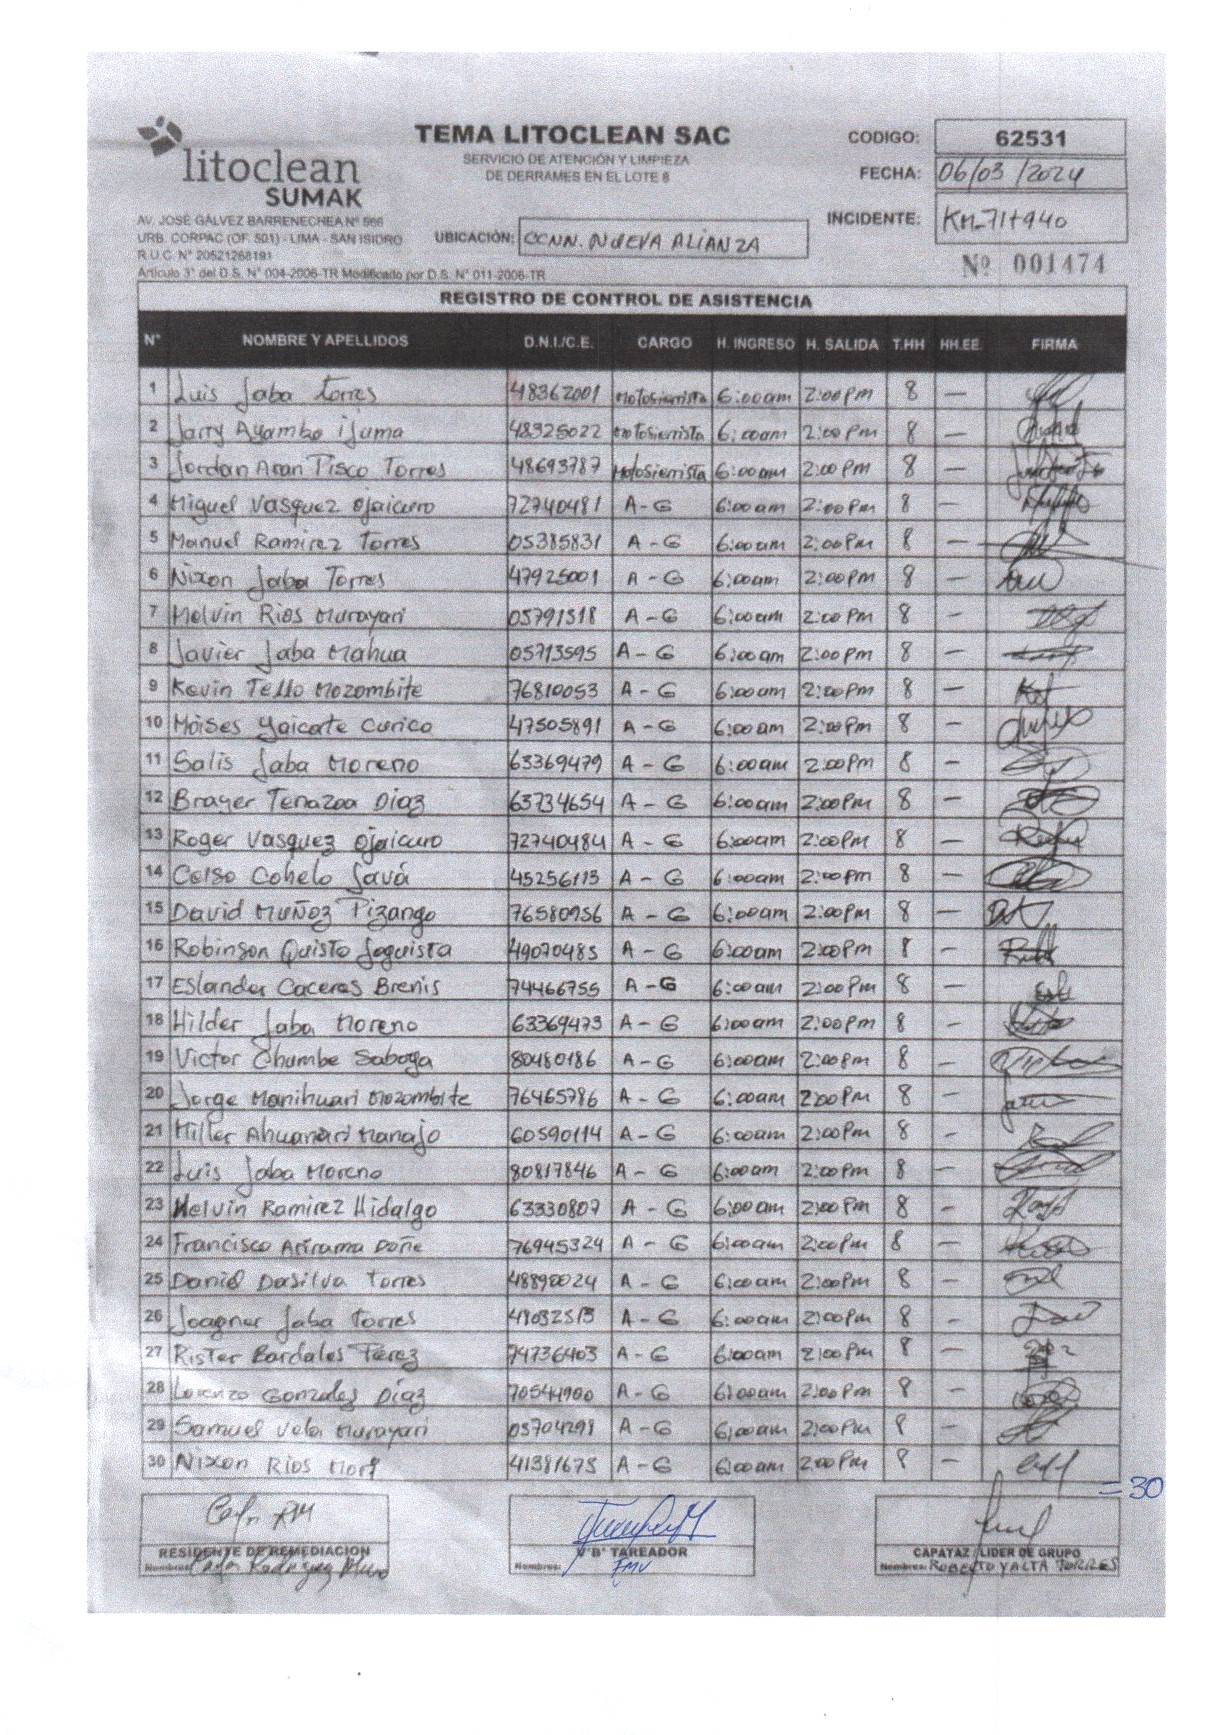 litoclean
SUMAK
TEMA LITOCLEAN SAC
SERVICIO DE ATENCIÓN Y LIMPIEZA
DE DERRAMES EN EL LOTE 8
CODIGO: 62531
FECHA: 06/03/2024
INCIDENTE: Km-71+940
AV. JOSÉ GÁLVEZ BARRENECHEA N° 566
URB. CORPAC (OF. 501) - LIMA - SAN ISIDRO
R.U.C. N° 20521268191
Artículo 3° del D.S. N° 004-2006-TR Modificado por D.S. N° 011-2006-TR
UBICACIÓN: CCNN. NUEVA ALIANZA
Nº 001474
REGISTRO DE CONTROL DE ASISTENCIA
N° NOMBRE Y APELLIDOS D.N.I./C.E. CARGO H. INGRESO H. SALIDA T.HH HH.EE. FIRMA
1 Luis Jaba Torres 48362001 Motosierrista 6:00am 2:00pm 8 —
2 Jarry Ayambo ijuma 48325022 motosierrista 6:00am 2:00pm 8 —
3 Jordan Aran Pisco Torres 48693787 Motosierrista 6:00am 2:00pm 8 —
4 Miguel Vasquez Ojaicuro 72740481 A-G 6:00am 2:00pm 8 —
5 Manuel Ramirez Torres 05385831 A-G 6:00am 2:00pm 8 —
6 Nixon Jaba Torres 47925001 A-G 6:00am 2:00pm 8 —
7 Melvin Rios Murayari 05791518 A-G 6:00am 2:00pm 8 —
8 Javier Jaba Mahua 05713595 A-G 6:00am 2:00pm 8 —
9 Kevin Tello Mozombite 76810053 A-G 6:00am 2:00pm 8 —
10 Moises Yaicate Curico 47505891 A-G 6:00am 2:00pm 8 —
11 Salis Jaba Moreno 63369479 A-G 6:00am 2:00pm 8 —
12 Brayer Tenazoa Diaz 63734654 A-G 6:00am 2:00pm 8 —
13 Roger Vasquez Ojaicuro 72740484 A-G 6:00am 2:00pm 8 —
14 Celso Cohelo Savá 45256113 A-G 6:00am 2:00pm 8 —
15 David Muñoz Pizango 76580956 A-G 6:00am 2:00pm 8 —
16 Robinson Quisto 49070485 A-G 6:00am 2:00pm 8 —
17 Eslander Caceres Brenis 74466755 A-G 6:00am 2:00pm 8 —
18 Hilder Jaba Moreno 63369473 A-G 6:00am 2:00pm 8 —
19 Victor Chumbe Saboya 80480186 A-G 6:00am 2:00pm 8 —
20 Jorge Manihuari Mozombite 76465786 A-G 6:00am 2:00pm 8 —
21 Miller Ahuanari Manajo 60590114 A-G 6:00am 2:00pm 8 —
22 Luis Jaba Moreno 80817846 A-G 6:00am 2:00pm 8 —
23 Kelvin Ramirez Hidalgo 63330807 A-G 6:00am 2:00pm 8 —
24 Francisco Arirama Doñe 76945324 A-G 6:00am 2:00pm 8 —
25 Daniel Dasilva Torres 48890024 A-G 6:00am 2:00pm 8 —
26 Joagner Jaba Torres A-G 6:00am 2:00pm 8 —
27 Rister Bardales Pérez 74736403 A-G 6:00am 2:00pm 8 —
28 Lorenzo Gonzales Díaz 70544900 A-G 6:00am 2:00pm 8 —
29 Samuel Vela Murayari 05704298 A-G 6:00am 2:00pm 8 —
30 Nixon Rios Mori 41381675 A-G 6:00am 2:00pm 8 —
= 30
RESIDENTE DE REMEDIACION
Nombres: Carlos Rodriguez
V°B° TAREADOR
Nombres: FMV
CAPATAZ / LIDER DE GRUPO
Nombres: ROBERTO YALTA TORRES